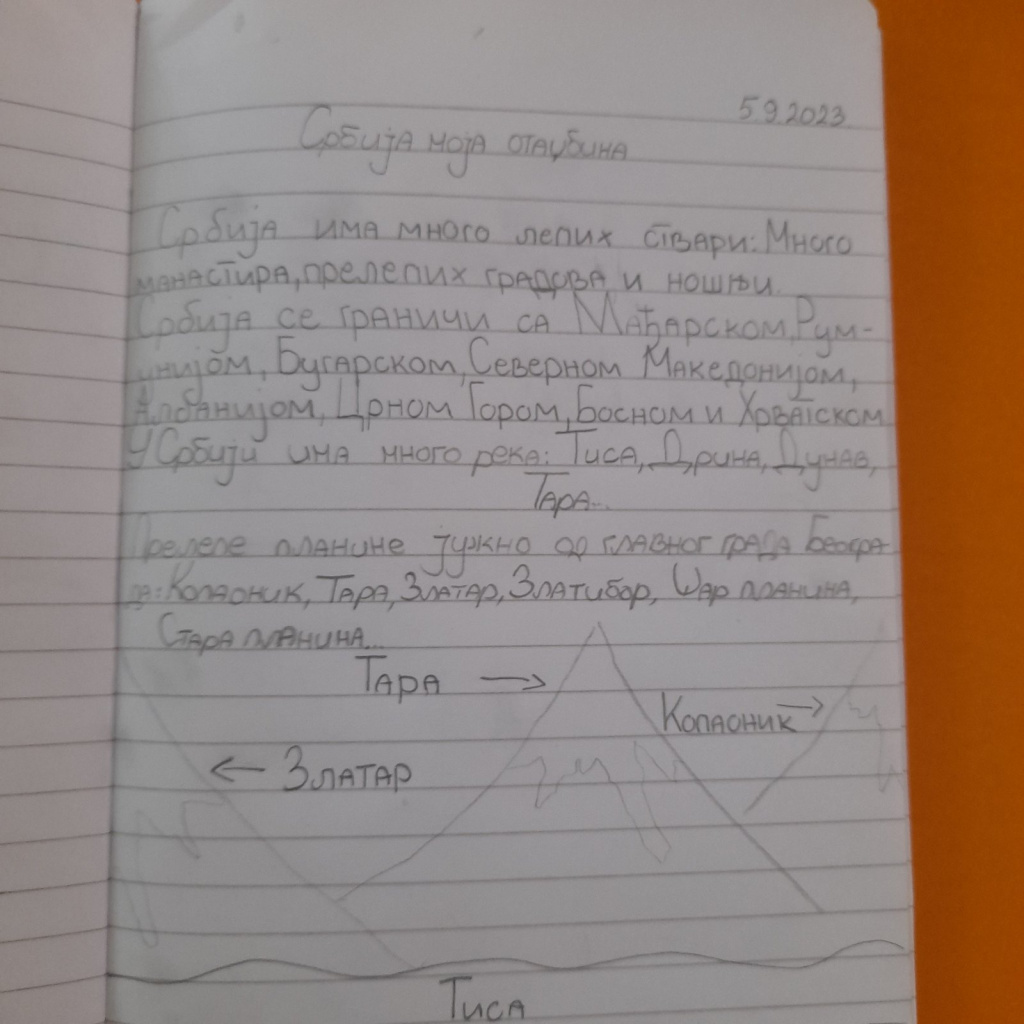 5 9 2023
Србија моја отаџбина
Србија има много лепих ствари: Много
манастира, прелепих градова и ношњи.
Србија се граничи са Мађарском, Рум-
унијом, Бугарском, Северном Македонијом,
Албанијом, Црном Гором, Босном и Хрватском
У Србији има много река: Тиса, Дрина, Дунав,
Тара...
Прелепе планине јужно од главног града Београ-
да: Копаоник, Тара, Златар, Златибор, Шар планина,
Стара планина...
Тара →
Копаоник →
← Златар
Тиса